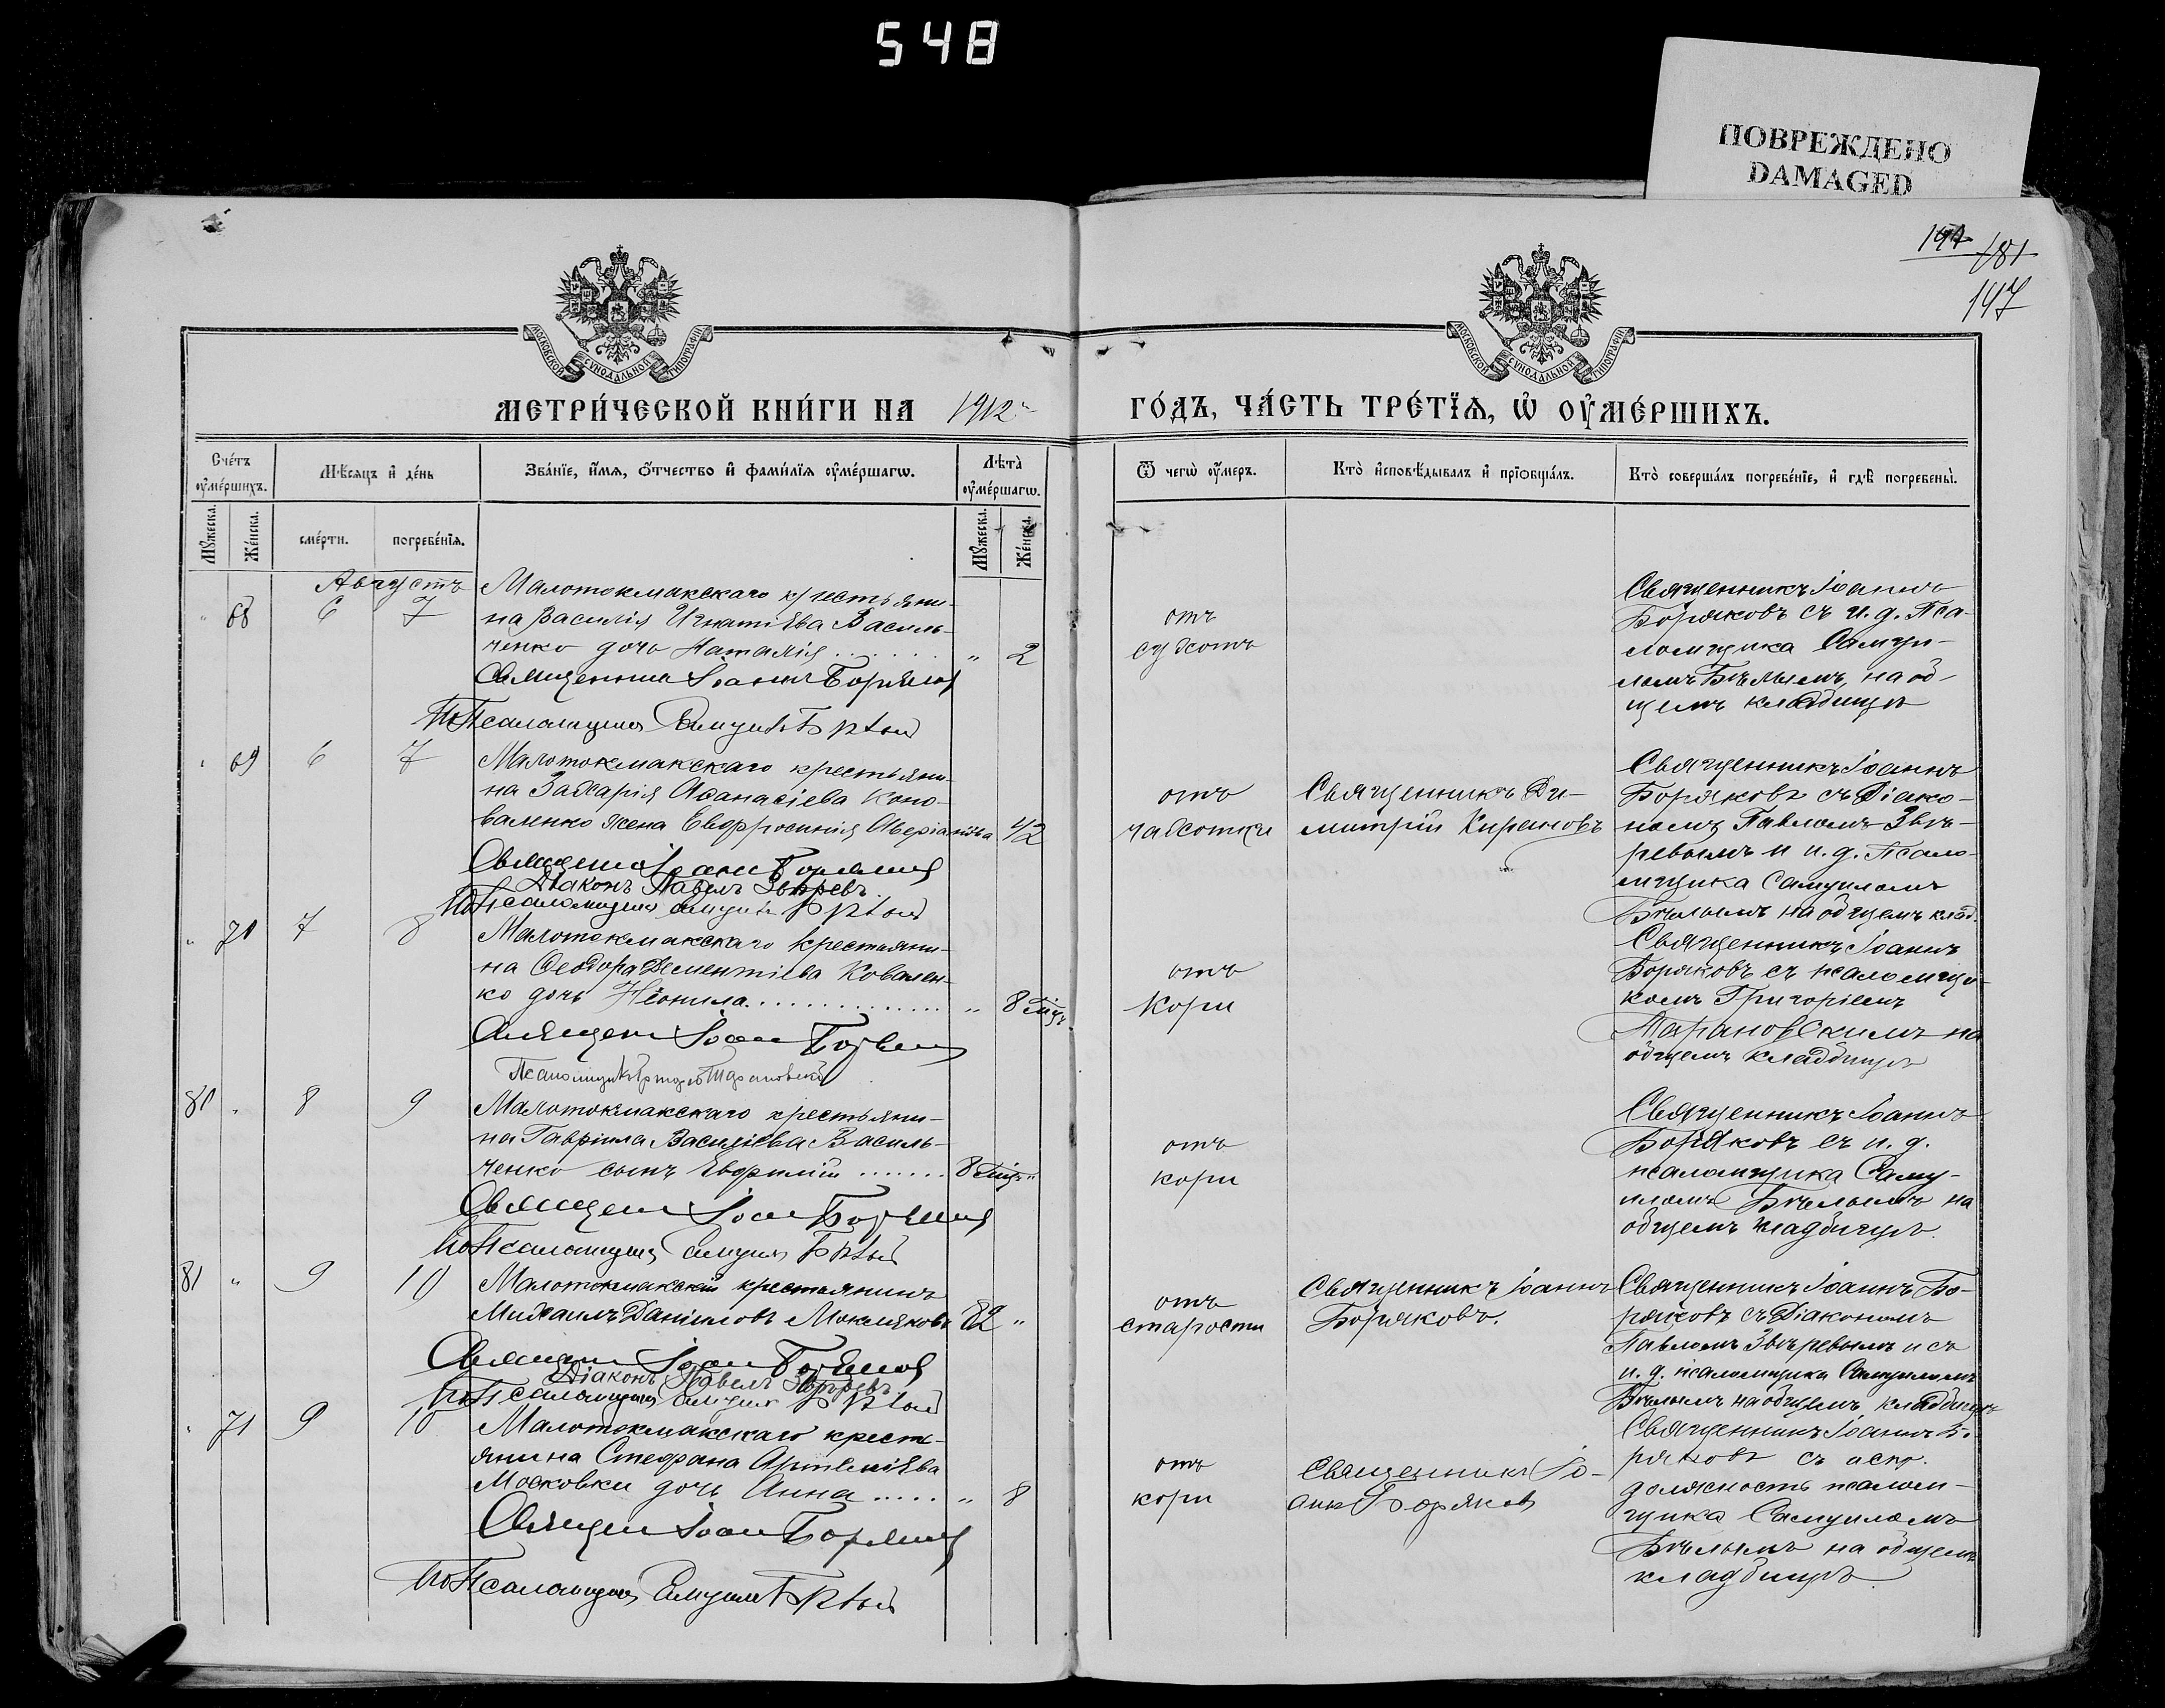 548
ПОВРЕЖДЕНО
DAMAGED
181
147
МОСКОВСКОЙ СУНОДАЛЬНОЙ ТИПОГРАФІИ
МОСКОВСКОЙ СУНОДАЛЬНОЙ ТИПОГРАФІИ
МЕТРИ́ЧЕСКОЙ КНИ́ГИ НА 1912
ГО́ДЪ, ЧА́СТЬ ТРЕ́ТЇѦ, Ѡ҆ ОУ҆МЕ́РШИХЪ.
Сче́тъ оу҆ме́ршихъ.
Мѣ́сяцъ и҆ де́нь
Зва́нїе, и҆́мя, ѻ҆́тчество и҆ фами́лїя оу҆ме́ршагѡ.
Лѣта̀ оу҆ме́ршагѡ.
Ѿ чегѡ̀ оу҆́меръ.
Кто̀ и҆сповѣ́дывалъ и҆ прїѡбща́лъ.
Кто̀ соверша́лъ погребе́нїе, и҆ гдѣ̀ погребены̀.
Мꙋ́жеска.
Же́нска.
сме́рти.
погребе́нїя.
Мꙋ́жеска.
Же́нска.
Августъ
68 6 7
Малотокмакскаго крестьяни-
на Василія Игнатіева Василь-
ченко дочь Наталія . . . . . . " 2
Священникъ Іоаннъ Боряковъ
Псаломщика Самуилъ Бѣлый
отъ
сухотъ
Священникъ Іоаннъ
Боряковъ съ и. д. Пса-
ломщика Самуи-
ломъ Бѣлымъ, на об-
щемъ кладбищѣ
69 6 7
Малотокмакскаго крестьяни-
на Захарія Аѳанасіева Коно-
валенко жена Евфросинія Аверіанова 42
Священникъ Іоаннъ Боряковъ
Діаконъ Павелъ Звѣревъ
Псаломщика Самуилъ Бѣлый
отъ
чахотки
Священникъ Ди-
митрій Киранов
Священникъ Іоаннъ
Боряковъ съ Діако-
номъ Павломъ Звѣ-
ревымъ и и. д. Псало-
мщика Самуиломъ
Бѣлымъ на общемъ клад.
" 70 7 8
Малотокмакскаго крестьяни-
на Ѳеодора Дементіева Ковален-
ко дочь Неонила . . . . . . . . . " 8 мѣц.
Священникъ Іоаннъ Боряковъ
Псаломщикъ Григорій Тарановскій
отъ
кори
Священникъ Іоаннъ
Боряковъ съ псаломщи-
комъ Григоріемъ
Тарановскимъ на
общемъ кладбищѣ
80 " 8 9
Малотокмакскаго крестьяни-
на Гавріила Василіева Василь-
ченко сынъ Евфимій . . . . . . . 8 мѣц. "
Священникъ Іоаннъ Боряковъ
Псаломщика Самуилъ Бѣлый
отъ
кори
Священникъ Іоаннъ
Боряковъ съ и. д.
псаломщика Саму-
иломъ Бѣлымъ на
общемъ кладбищѣ.
81 " 9 10
Малотокмакскій крестьянинъ
Михаилъ Даніиловъ Мокляковъ 82 "
Священникъ Іоаннъ Боряковъ
Діаконъ Павелъ Звѣревъ
Псаломщика Самуилъ Бѣлый
отъ
старости
Священникъ Іоаннъ
Боряковъ.
Священникъ Іоаннъ Бо-
ряковъ съ Діакономъ
Павломъ Звѣревымъ и съ
и. д. псаломщика Самуиломъ
Бѣлымъ на общемъ кладбищѣ
" 71 9 10
Малотокмакскаго кресть-
янина Стефана Артеміева
Московки дочь Анна . . . . . " 8
Священникъ Іоаннъ Боряковъ
Псаломщика Самуилъ Бѣлый
отъ
кори
Священникъ Іо-
аннъ Боряковъ
Священникъ Іоаннъ Бо-
ряковъ съ испр.
должность псалом-
щика Самуиломъ
Бѣлымъ на общемъ
кладбищѣ.